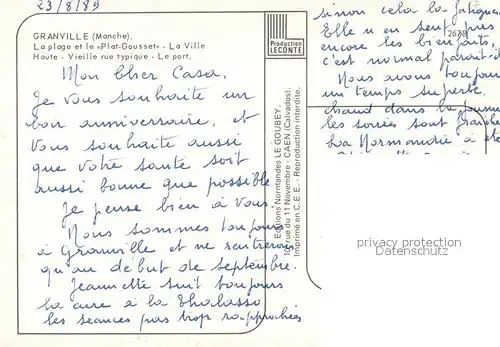 23/8/89
GRANVILLE (Manche).
La plage et le «Plat-Gousset» - La Ville
Haute - Vieille rue typique - Le port.
Production
LECONTE
Mon Cher Casa.
Je vous souhaite un
bon anniversaire, et
vous souhaite aussi
que votre santé soit
aussi bonne que possible
Je pense bien à vous.
Nous sommes toujours
à Granville et ne rentrerons
qu'au début de septembre.
Jeannette suit toujours
la cure à la Thalasso
les séances pas trop rapprochées
Editions Normandes LE GOUBEY
rue du 11 Novembre - CAEN (Calvados).
Imprimé en C.E.E. - Reproduction interdite.
sinon cela la fatigue.
Elle n en sent pas
2678
encore les bienfaits,
c'est normal paraît-il
Nous avons toujours
un temps superbe
chaud dans la
les soirées sont
La Normandie a été
privacy protection
Datenschutz